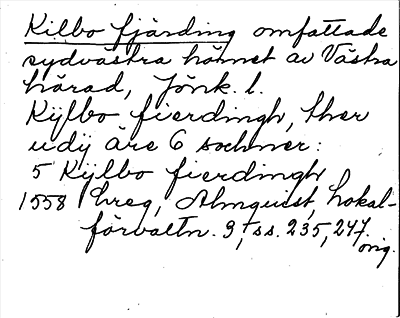 Kilbo fjärding omfattade
sydvästra hörnet av Västra
härad, Jönk. l.
Kÿlbo fierdingh, ther
udij äre 6 sochner:
5 Kÿlbo fierdingh
1558 Ehreg, Almquist, Lokal-
förvaltn. 3, ss. 235, 247.
orig.